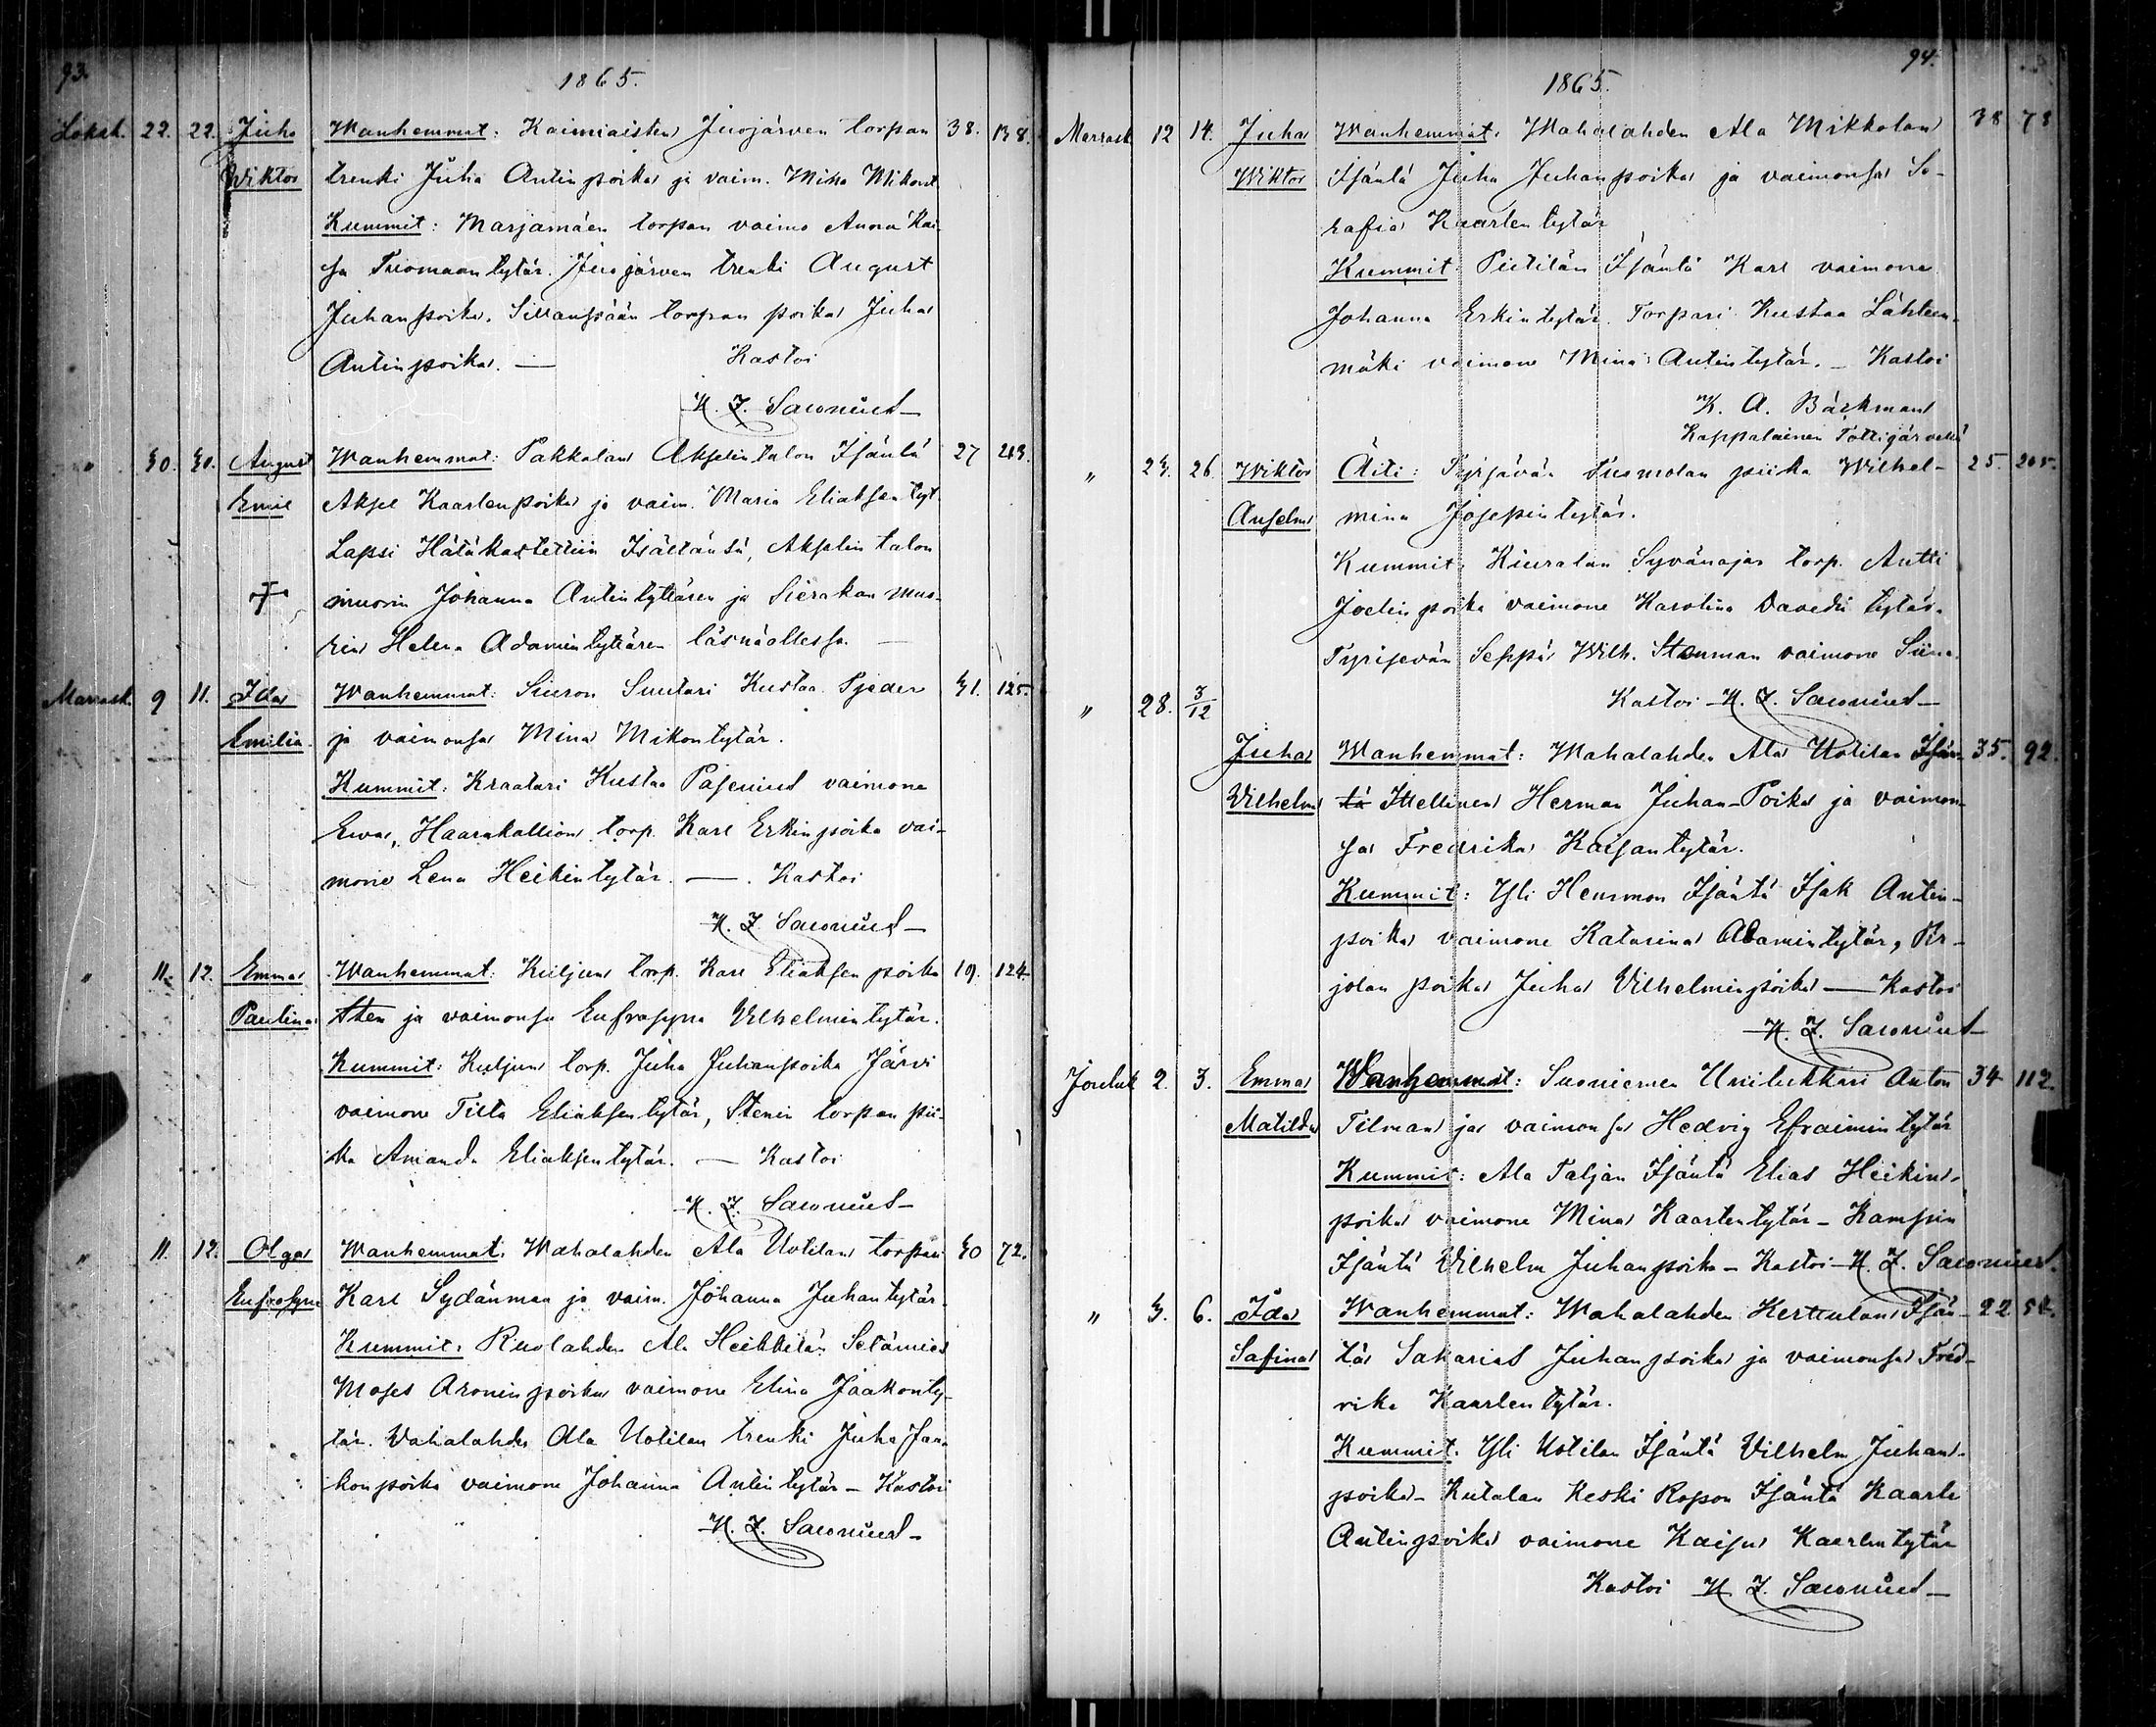 93.
1865.
Lokak. 22. 22. Juho Wanhemmat: Kaimiaisten Juojärven torpan 38. 138.
Wiktor trenki Juha Antinpoika ja vaim. Miina Mikont.
Kummit: Marjamäen torpan vaimo Anna Kai-
sa Tuomaantytär. Juojärven trenki August
Juhanpoika. Sillanpään torpan poika Juha
Antinpoika. — Kastoi
K. J. Sawonius
" 30. 30. August Wanhemmat: Pakkalan Akselin talon Isäntä 27 213.
Emil Aksel Kaarlenpoika ja vaim. Maria Eliaksen tyt.
Lapsi Hätäkastettiin Isältänsä, Akselin talon
† muorin Johanna Antintyttären ja Sierakan muo-
rin Helena Adamintyttären läsnäollessa. —
Marrask. 9 11. Ida Wanhemmat: Siuron Suutari Kustaa Pjeder 31. 125.
Emilia. ja vaimonsa Mina Mikontytär.
Kummit: Kraatari Kustaa Pasenius vaimone
Ewa, Haarakallion torp. Karl Erkinpoika vai-
mone Lena Heikintytär. — Kastoi
K. J. Sawonius
" 11. 12. Emma Wanhemmat: Kuljun torp. Karl Eliaksen poika 19. 124.
Paulina Sten ja vaimonsa Eufrasyna Vilhelmintytär.
Kummit: Kuljun torp. Juha Juhanpoika Järvi
vaimone Tilta Eliaksentytär, Stenin torpan pii-
ka Amanda Eliaksentytär. — Kastoi
K. J. Sawonius
" 11. 12. Olga Wanhemmat: Wahalahden Ala Uotilan torpari 30 72.
Eufrosyne Karl Sydänmaa ja vaim. Johanna Juhantytär.
Kummit: Ruolahden Ala Heikkilän Setämies
Moses Aroninpoika vaimone Elina Jaakonty-
tär. Wahalahden Ala Uotilan trenki Juha Jaa-
konpoika vaimone Johanna Antintytär — Kastoi
K. J. Sawonius
94.
1865.
Marrask. 12 14. Juha Wanhemmat: Wahalahden Ala Mikkolan 38 73
Wiktor Isäntä Juha Juhanpoika ja vaimonsa Se-
rafia Kaarlentytär
Kummit: Pietilän Isäntä Karl vaimone
Johanna Erkintytär. Torpari Kustaa Lähteen-
mäki vaimone Mina Antintytär. — Kastoi
K. A. Bäckman
Kappalainen Tottijärvellä
" 23. 26. Wiktor Äiti: Tyrisävän Tuomolan piika Wilhel- 25. 205.
Anselm mina Josepintytär.
Kummit: Kiuralan Syvänojan torp. Antti
Joelinpoika vaimone Karolina Davedintytär.
Tyrisevän Seppä Wilh. Stenman vaimone Siina.
Kastoi K. J. Sawonius
" 28. 3/12
Juha Wanhemmat: Wahalahden Ala Uotilan Isän- 35. 92.
Vilhelm tä Itellinen Herman Juhan-Poika ja vaimon-
sa Fredrika Kaisantytär.
Kummit: Yli Hensmon Isäntä Isak Antin-
poika vaimone Katarina Adamintytär, Pir-
jolan poika Juha Vilhelminpoika — Kastoi
K. J. Sawonius
Jouluk. 2. 3. Emma Wanhemmat: Suoniemen Unilukkari Anton 34 112.
Matilda Tilman ja vaimonsa Hedvig Efraimintytär
Kummit: Ala Taljan Isäntä Elias Heikin-
poika vaimone Mina Kaarlentytär — Kampin
Isäntä Vilhelm Juhanpoika — Kastoi K. J. Sawonius.
" 3. 6. Ida Wanhemmat: Wahalahden Kerttulan Isän- 22 54.
Safina tä Sakarias Juhanpoika ja vaimonsa Fred-
rika Kaarlentytär.
Kummit: Yli Uotilan Isäntä Vilhelm Juhan-
poika — Kutalan Keski Ropon Isäntä Kaarle
Antinpoika vaimone Kaisa Kaarlentytär
Kastoi K. J. Sawonius